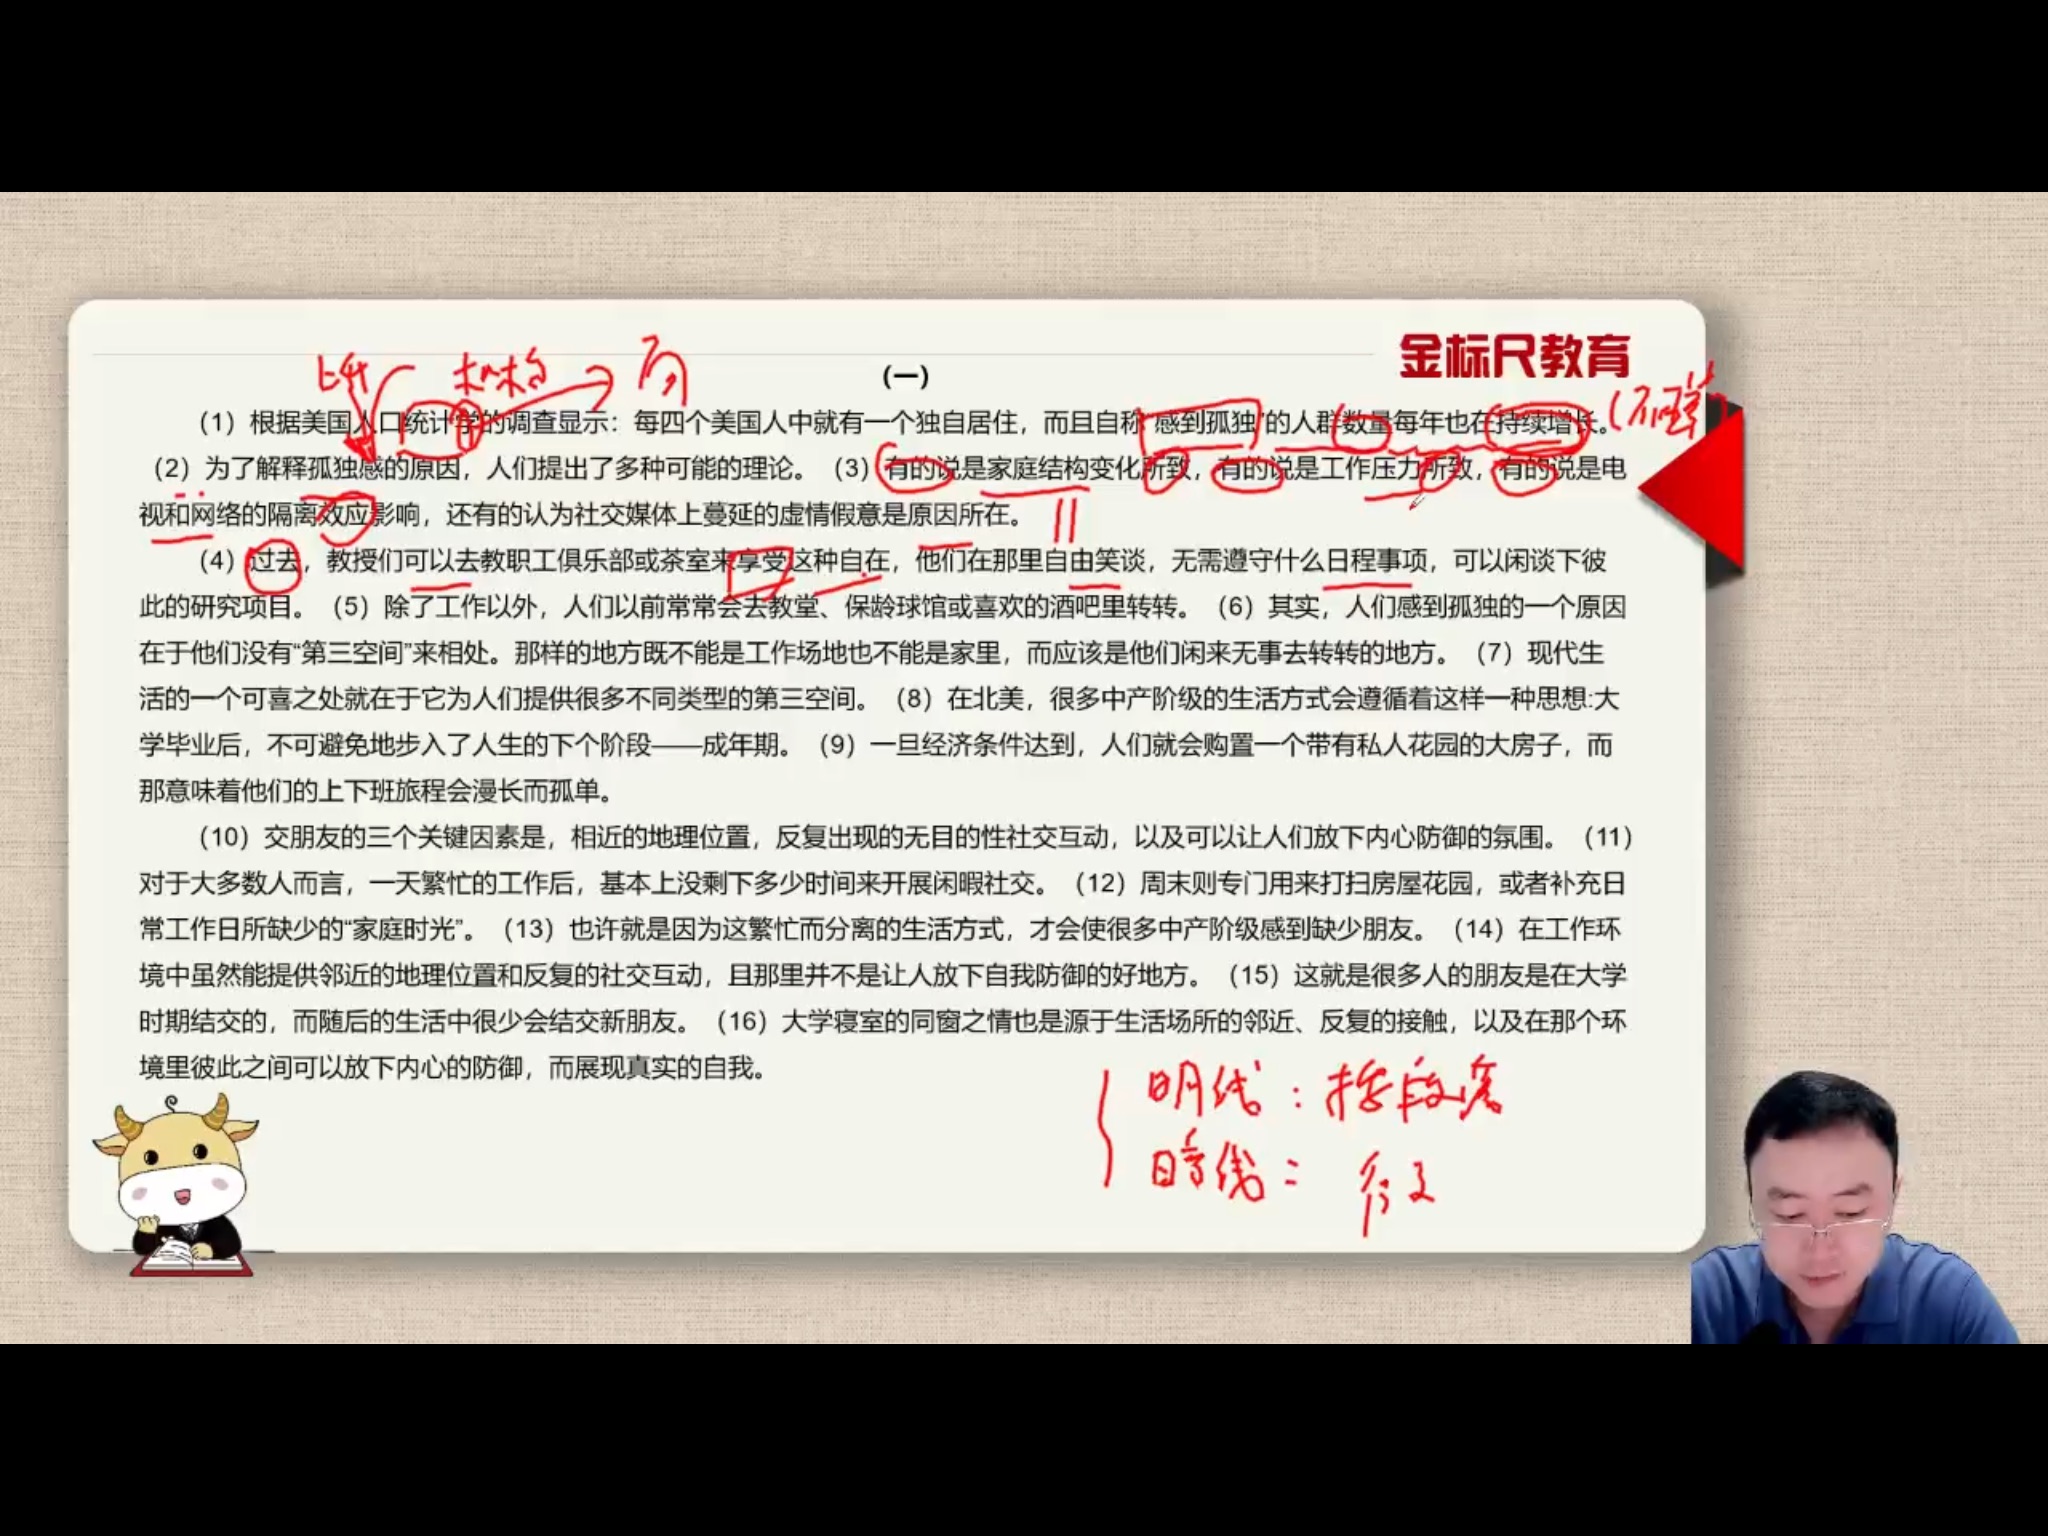 金标尺教育
(一)
（1）根据美国人口统计学的调查显示：每四个美国人中就有一个独自居住，而且自称“感到孤独”的人群数量每年也在持续增长。
（2）为了解释孤独感的原因，人们提出了多种可能的理论。（3）有的说是家庭结构变化所致，有的说是工作压力所致，有的说是电
视和网络的隔离效应影响，还有的认为社交媒体上蔓延的虚情假意是原因所在。
（4）过去，教授们可以去教职工俱乐部或茶室来享受这种自在，他们在那里自由笑谈，无需遵守什么日程事项，可以闲谈下彼
此的研究项目。（5）除了工作以外，人们以前常常会去教堂、保龄球馆或喜欢的酒吧里转转。（6）其实，人们感到孤独的一个原因
在于他们没有“第三空间”来相处。那样的地方既不能是工作场地也不能是家里，而应该是他们闲来无事去转转的地方。（7）现代生
活的一个可喜之处就在于它为人们提供很多不同类型的第三空间。（8）在北美，很多中产阶级的生活方式会遵循着这样一种思想:大
学毕业后，不可避免地步入了人生的下个阶段——成年期。（9）一旦经济条件达到，人们就会购置一个带有私人花园的大房子，而
那意味着他们的上下班旅程会漫长而孤单。
（10）交朋友的三个关键因素是，相近的地理位置，反复出现的无目的性社交互动，以及可以让人们放下内心防御的氛围。（11）
对于大多数人而言，一天繁忙的工作后，基本上没剩下多少时间来开展闲暇社交。（12）周末则专门用来打扫房屋花园，或者补充日
常工作日所缺少的“家庭时光”。（13）也许就是因为这繁忙而分离的生活方式，才会使很多中产阶级感到缺少朋友。（14）在工作环
境中虽然能提供邻近的地理位置和反复的社交互动，且那里并不是让人放下自我防御的好地方。（15）这就是很多人的朋友是在大学
时期结交的，而随后的生活中很少会结交新朋友。（16）大学寝室的同窗之情也是源于生活场所的邻近、反复的接触，以及在那个环
境里彼此之间可以放下内心的防御，而展现真实的自我。
明线：按段落
暗线：行文